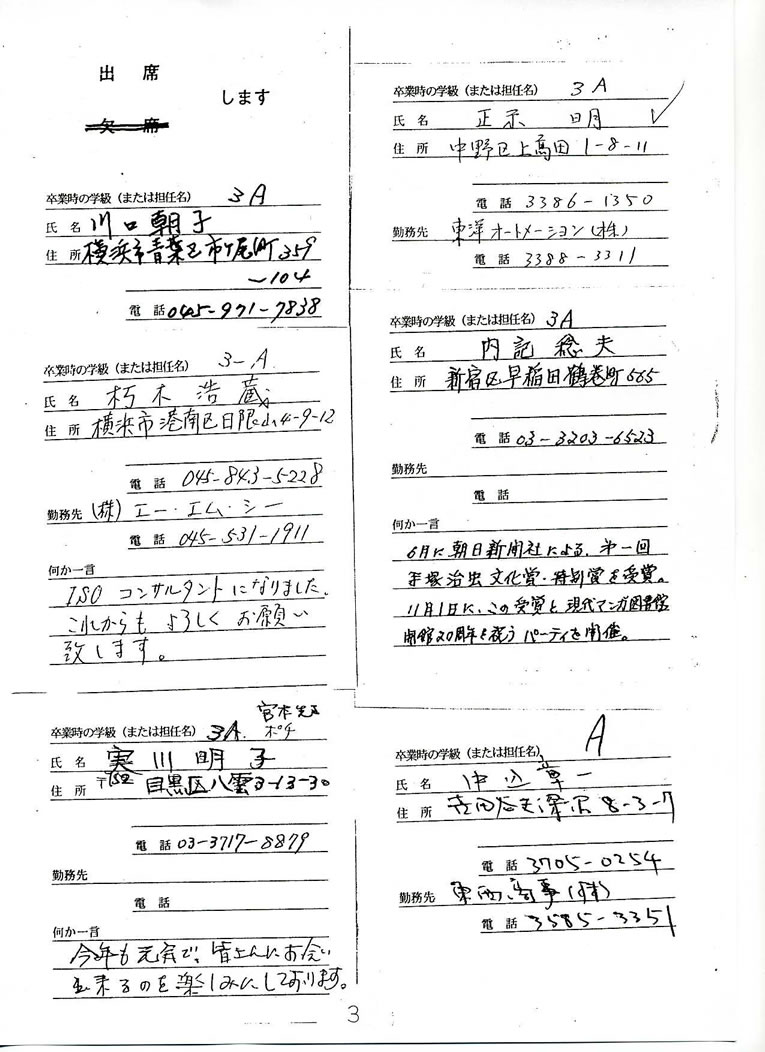 出 席
します
欠 席
卒業時の学級（または担任名） 3A
氏 名 川口朝子
住 所 横浜市青葉区市ケ尾町359
〜104
電 話 045-971-7838
卒業時の学級（または担任名） 3-A
氏 名 朽木浩蔵
住 所 横浜市港南区日限山4-9-12
電 話 045-843-5228
勤務先 (株) エー・エム・シー
電 話 045-531-1911
何か一言
ISO コンサルタントになりました.
これからも よろしく お願い
致します。
宮本先生
卒業時の学級（または担任名） 3A. ポチ
氏 名 実川明子
住 所 〒152 目黒区八雲3-13-30
電 話 03-3717-8879
勤務先
電 話
何か一言
今年も元気で、皆さんにお会い
出来るのを楽しみにしております。
卒業時の学級（または担任名） 3A
氏 名 正示 明
住 所 中野区上高田1-8-11
電 話 3386-1350
勤務先 東洋オートメーション(株)
電 話 3388-3311
卒業時の学級（または担任名） 3A
氏 名 内記稔夫
住 所 新宿区早稲田鶴巻町565
電 話 03-3203-6523
勤務先
電 話
何か一言
6月に朝日新聞社による、第一回
手塚治虫文化賞・特別賞を受賞。
11月1日に、この受賞と現代マンガ図書館
開館20周年を祝うパーティを開催。
卒業時の学級（または担任名） A
氏 名 中込章一
住 所 世田谷区深沢8-3-7
電 話 3705-0254
勤務先 東西商事(株)
電 話 3585-3351
3